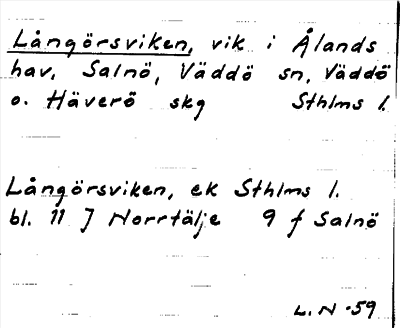 Långörsviken, vik i Ålands
hav, Salnö, Väddö sn, Väddö
o. Häverö skg Sthlms l.
Långörsviken, ek Sthlms l.
bl. 11 J Norrtälje 9 f Salnö
L.N -59